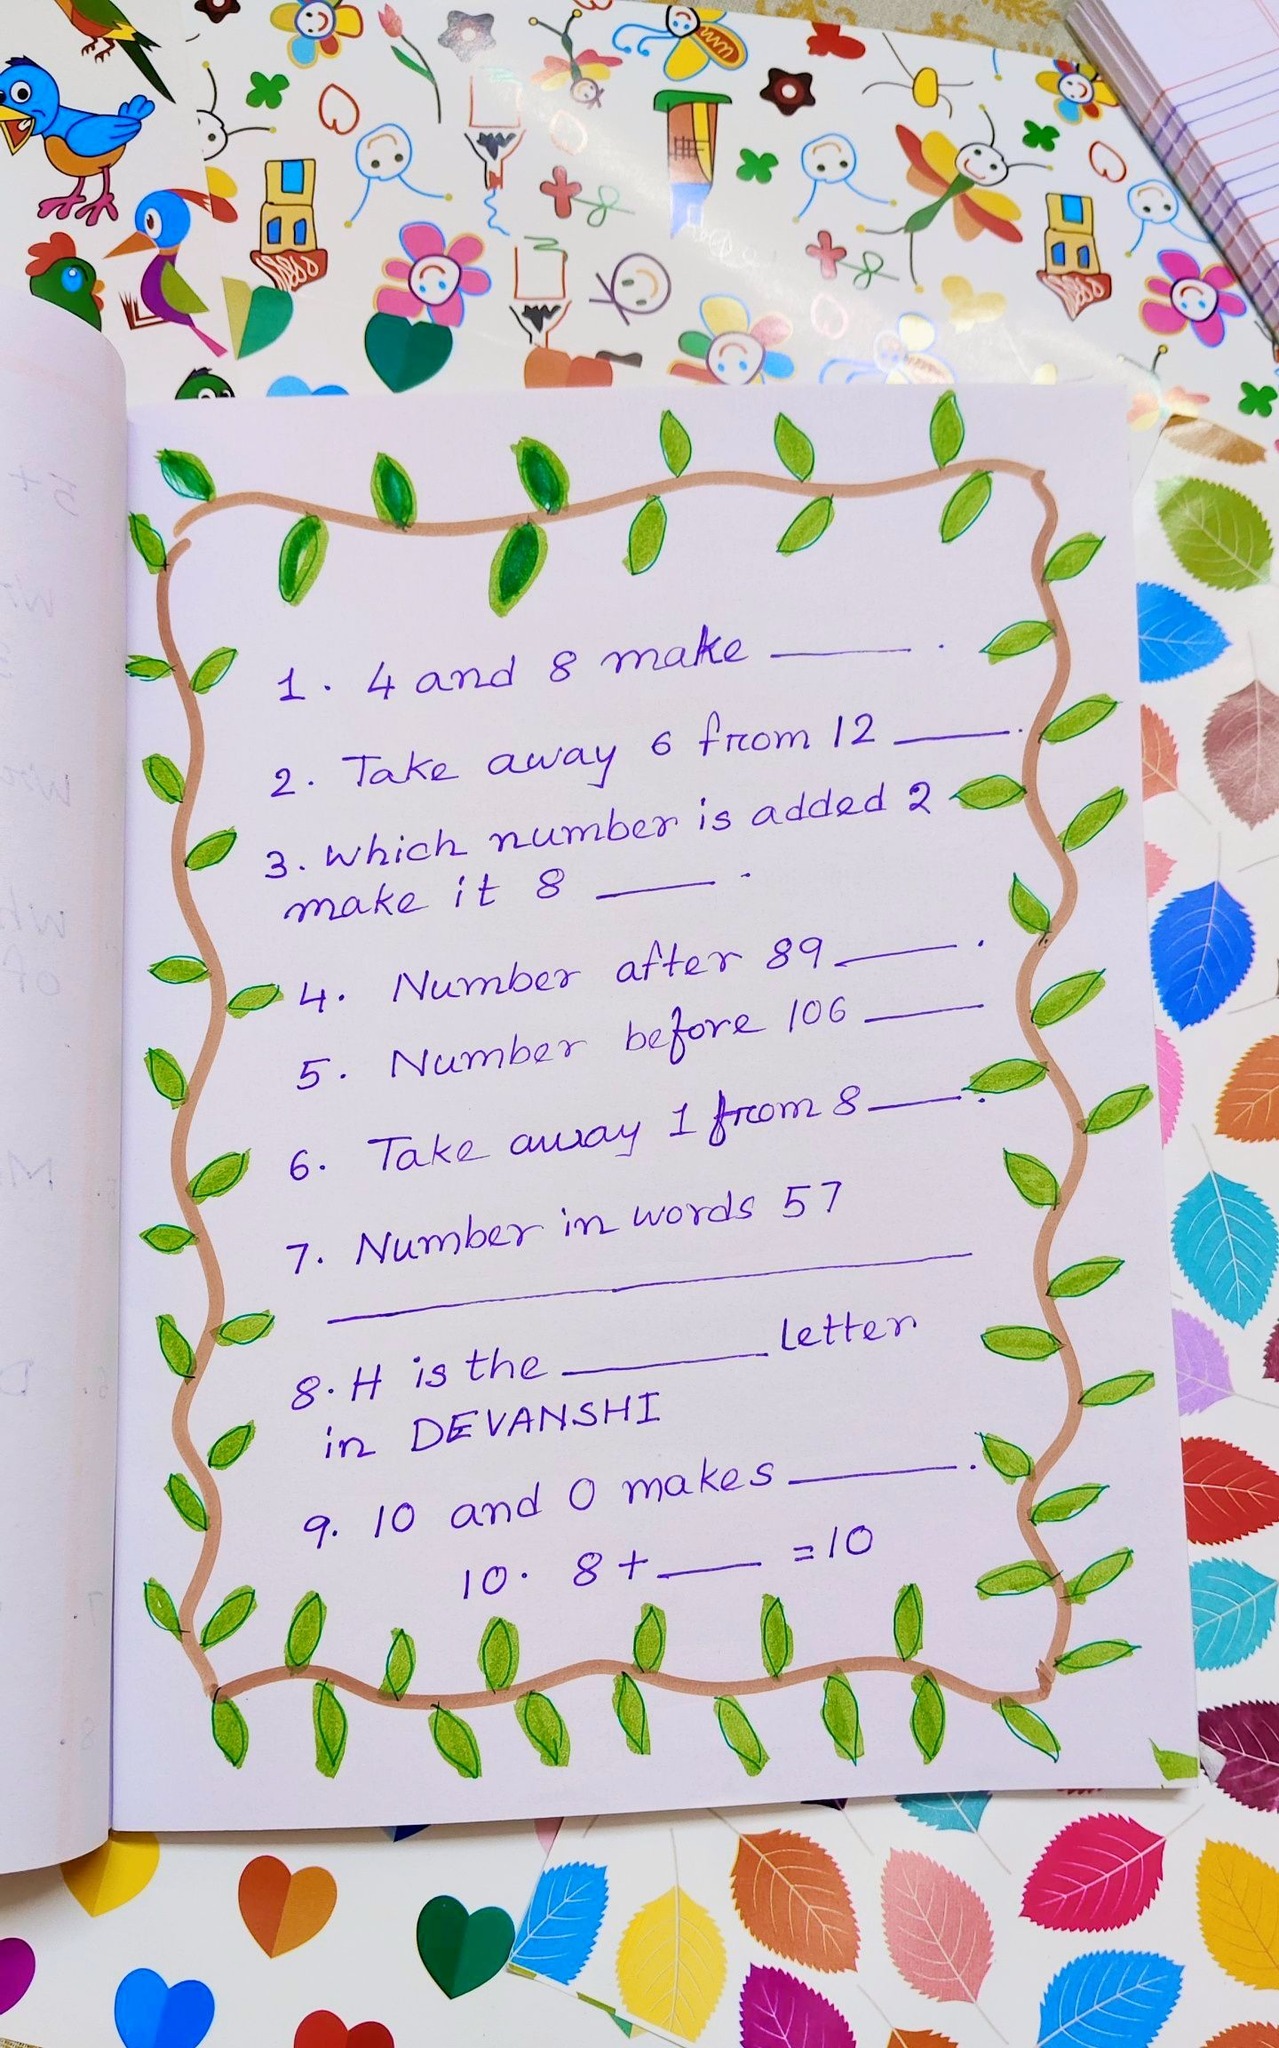 1. 4 and 8 make ______.
2. Take away 6 from 12 ______.
3. Which number is added 2
make it 8 ______.
4. Number after 89 ______.
5. Number before 106 ______
6. Take away 1 from 8 ______.
7. Number in words 57
______
8. H is the ______ letter
in DEVANSHI
9. 10 and 0 makes ______.
10. 8 + ____ = 10